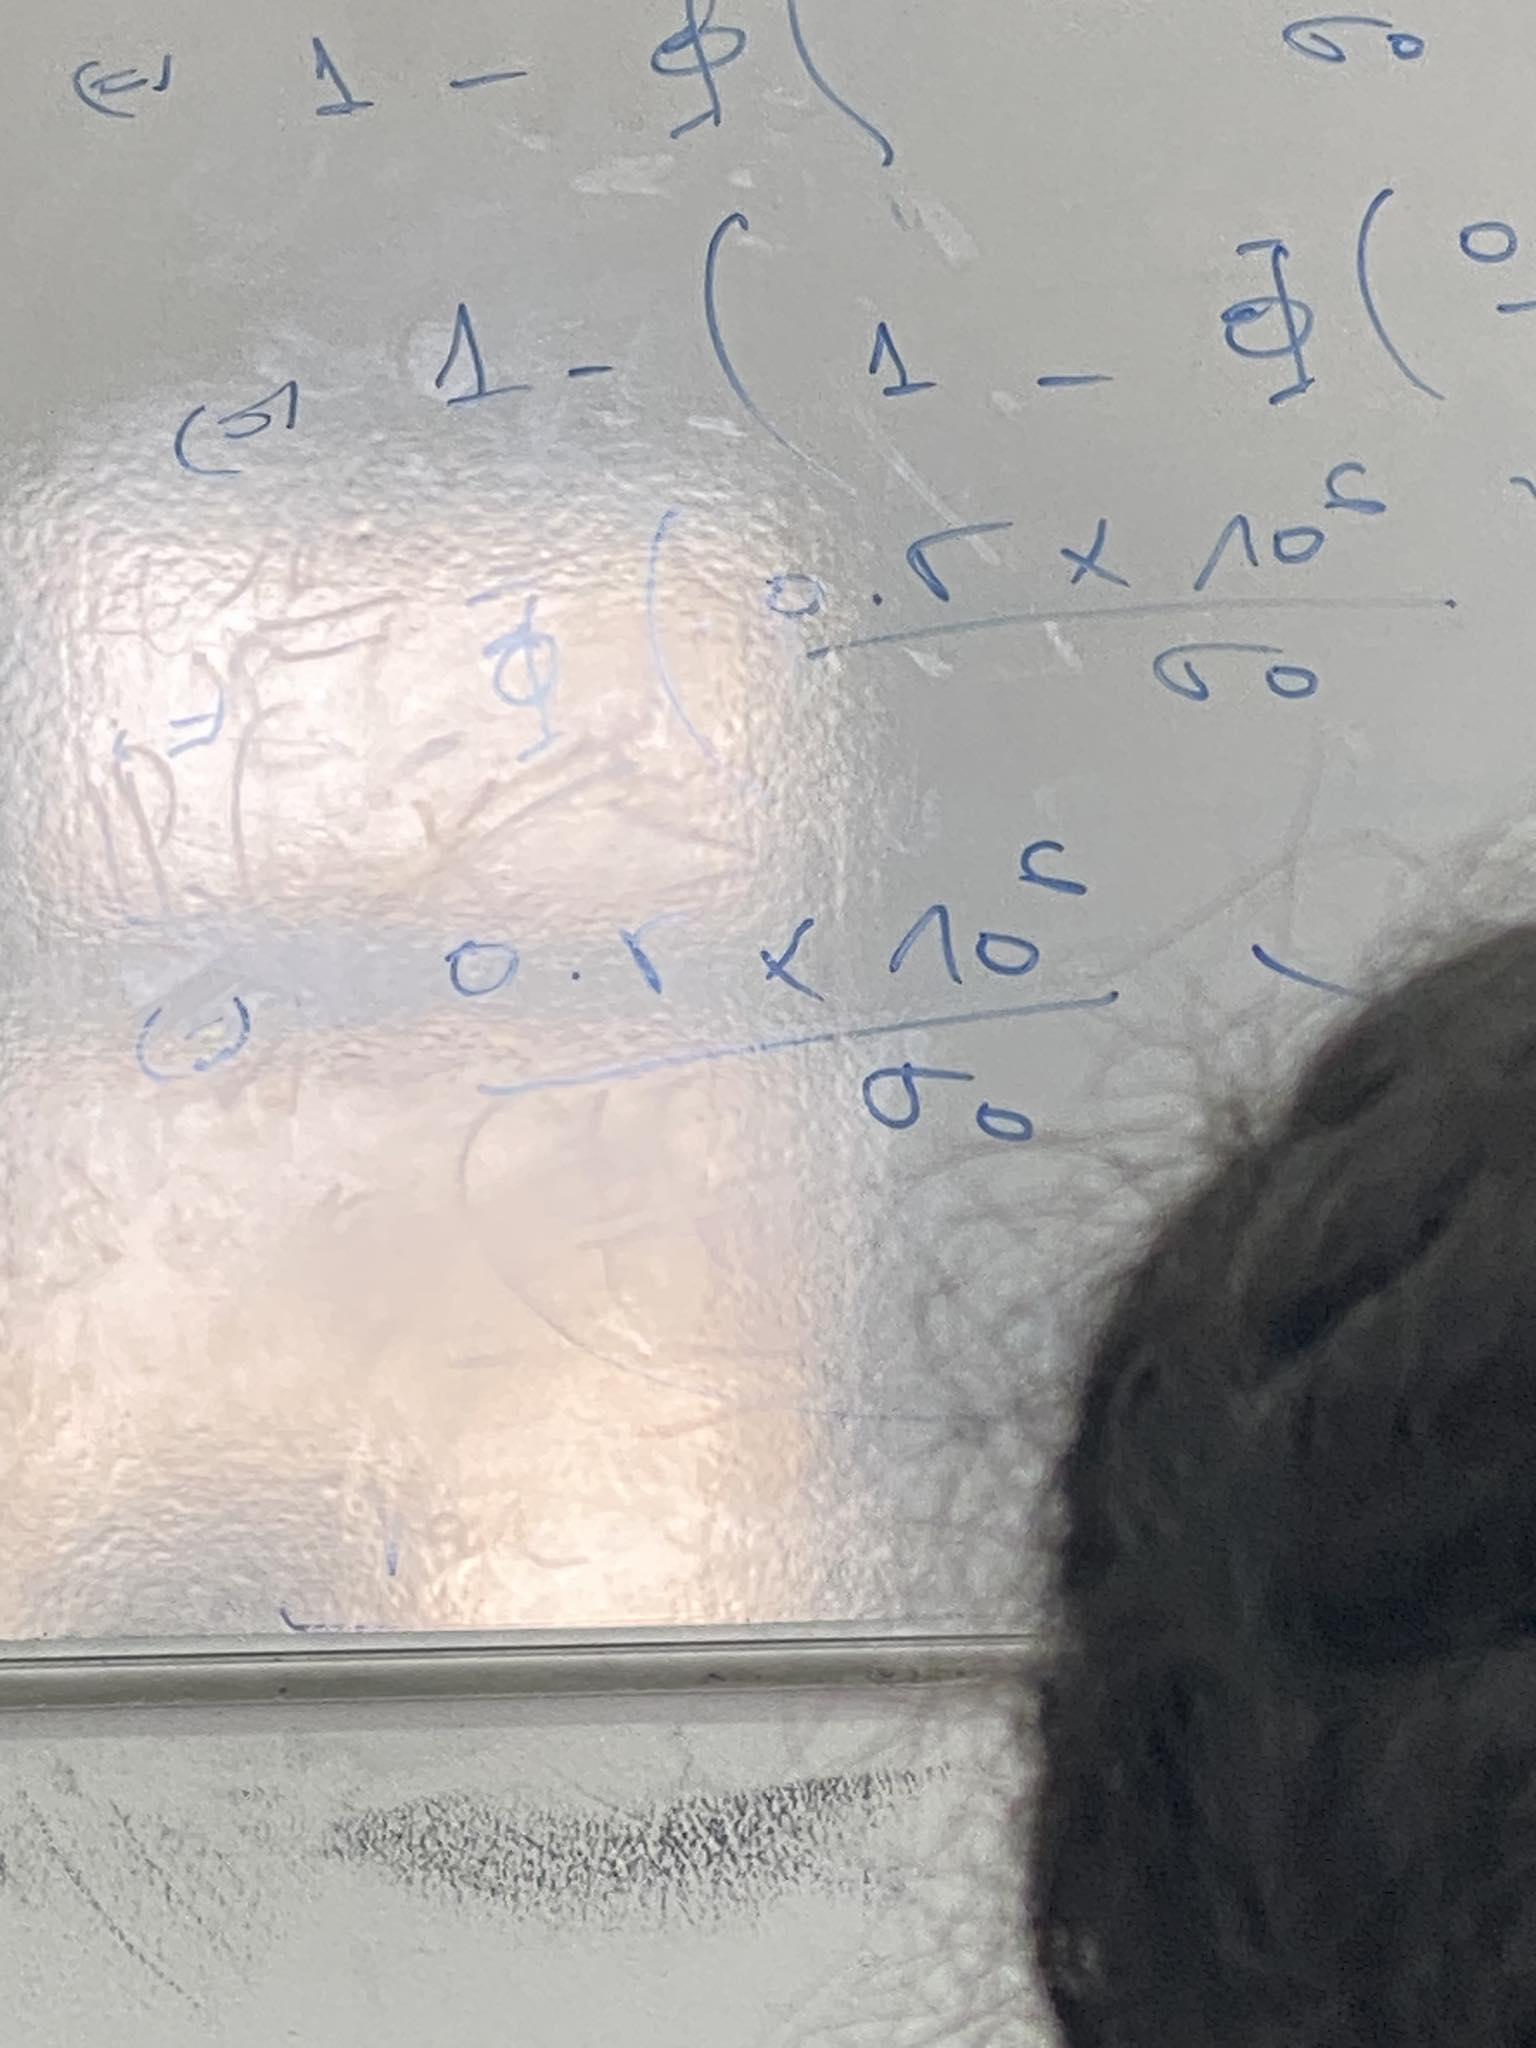 ⇔ 1 - Φ( σ₀
⇔ 1 - ( 1 - Φ( 0
⇔ Φ( 0.5 × 10⁵ / σ₀
⇔ 0.5 × 10⁵ / σ₀